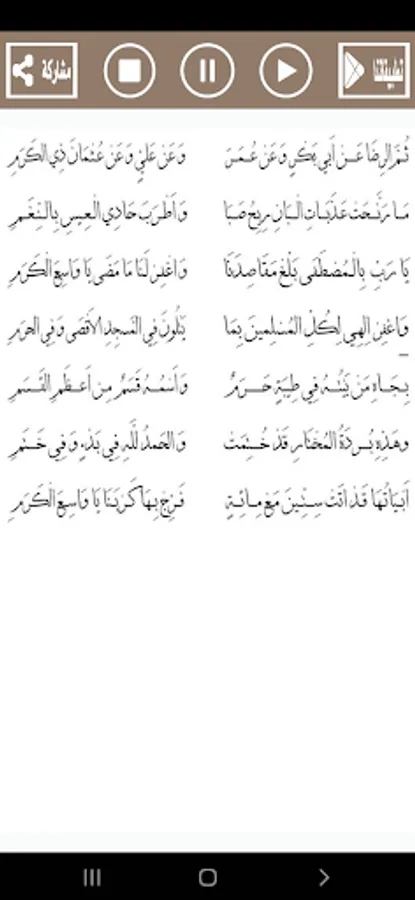 تطبيقاتنا
مشاركة
ثُمَّ الرِّضَا عَـنْ أَبِي بَكْرٍ وَعَنْ عُـمَـرَ وَعَنْ عَلِيٍّ وَعَنْ عُثْمَانَ ذِي الْكَرَمِ
مَـا رَنَّـحَتْ عَذَبَـاتِ الْـبَانِ رِيحُ صَـبَـا وَأَطْـرَبَ حَـادِي الْعِـيسِ بِالـنَّـغَـمِ
يَا رَبِّ بِالْمُصْطَفَى بَلِّغْ مَقَاصِدَنَا وَاغْفِرْ لَنَا مَا مَضَى يَا وَاسِعَ الْكَرَمِ
وَاغْفِرْ إِلهِي لِكُلِّ الْمُسْلِمِينَ بِمَا يَتْلُونَ فِي الْمَسْجِدِ الْأَقْصَى وَفِي الْحَرَمِ
بِـجَـاهِ مَنْ بَيْتُـهُ فِي طَيْبَةٍ حَــرَمٌ وَاسْمُـهُ قَسَمٌ مِنْ أَعْـظَمِ الْقَـسَمِ
وَهَذِهِ بُـرْدَةُ الْمُخْتَارِ قَدْ خُـتِمَتْ وَالْحَمْدُ لِلَّهِ فِي بَدْءٍ وَفِي خَـتَمِ
أَبْيَاتُهَا قَـدْ أَتَتْ سِـتِّينَ مَعْ مِـائَـةٍ فَـرِّجْ بِهَا كَرْبَنَا يَا وَاسِعَ الْكَرَمِ